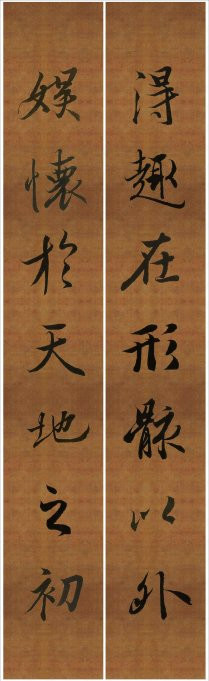 得趣在形骸以外
娱懷於天地之初